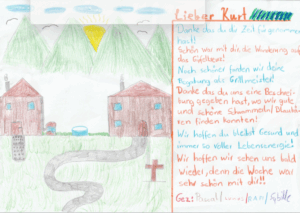 Lieber Kurt
Danke das du du Zeit für genommen
hast!
Schön war mit dir die Wanderung auf
das
Noch schöner finden wir deine
Begabung als Grillmeister!
Danke das du uns eine Beschrei-
bung gegeben hast, wo wir gute
und schöne Schwammerln/
finden konnten!
Wir hoffen du bleibst Gesund und
immer so voller Lebensenergie!
Wir hoffen wir sehen uns bald
wieder, denn die Woche war
sehr schön mit dir!!
Gez: